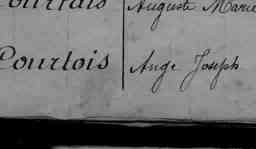 Courtois Auguste Marie
Courtois Ange Joseph